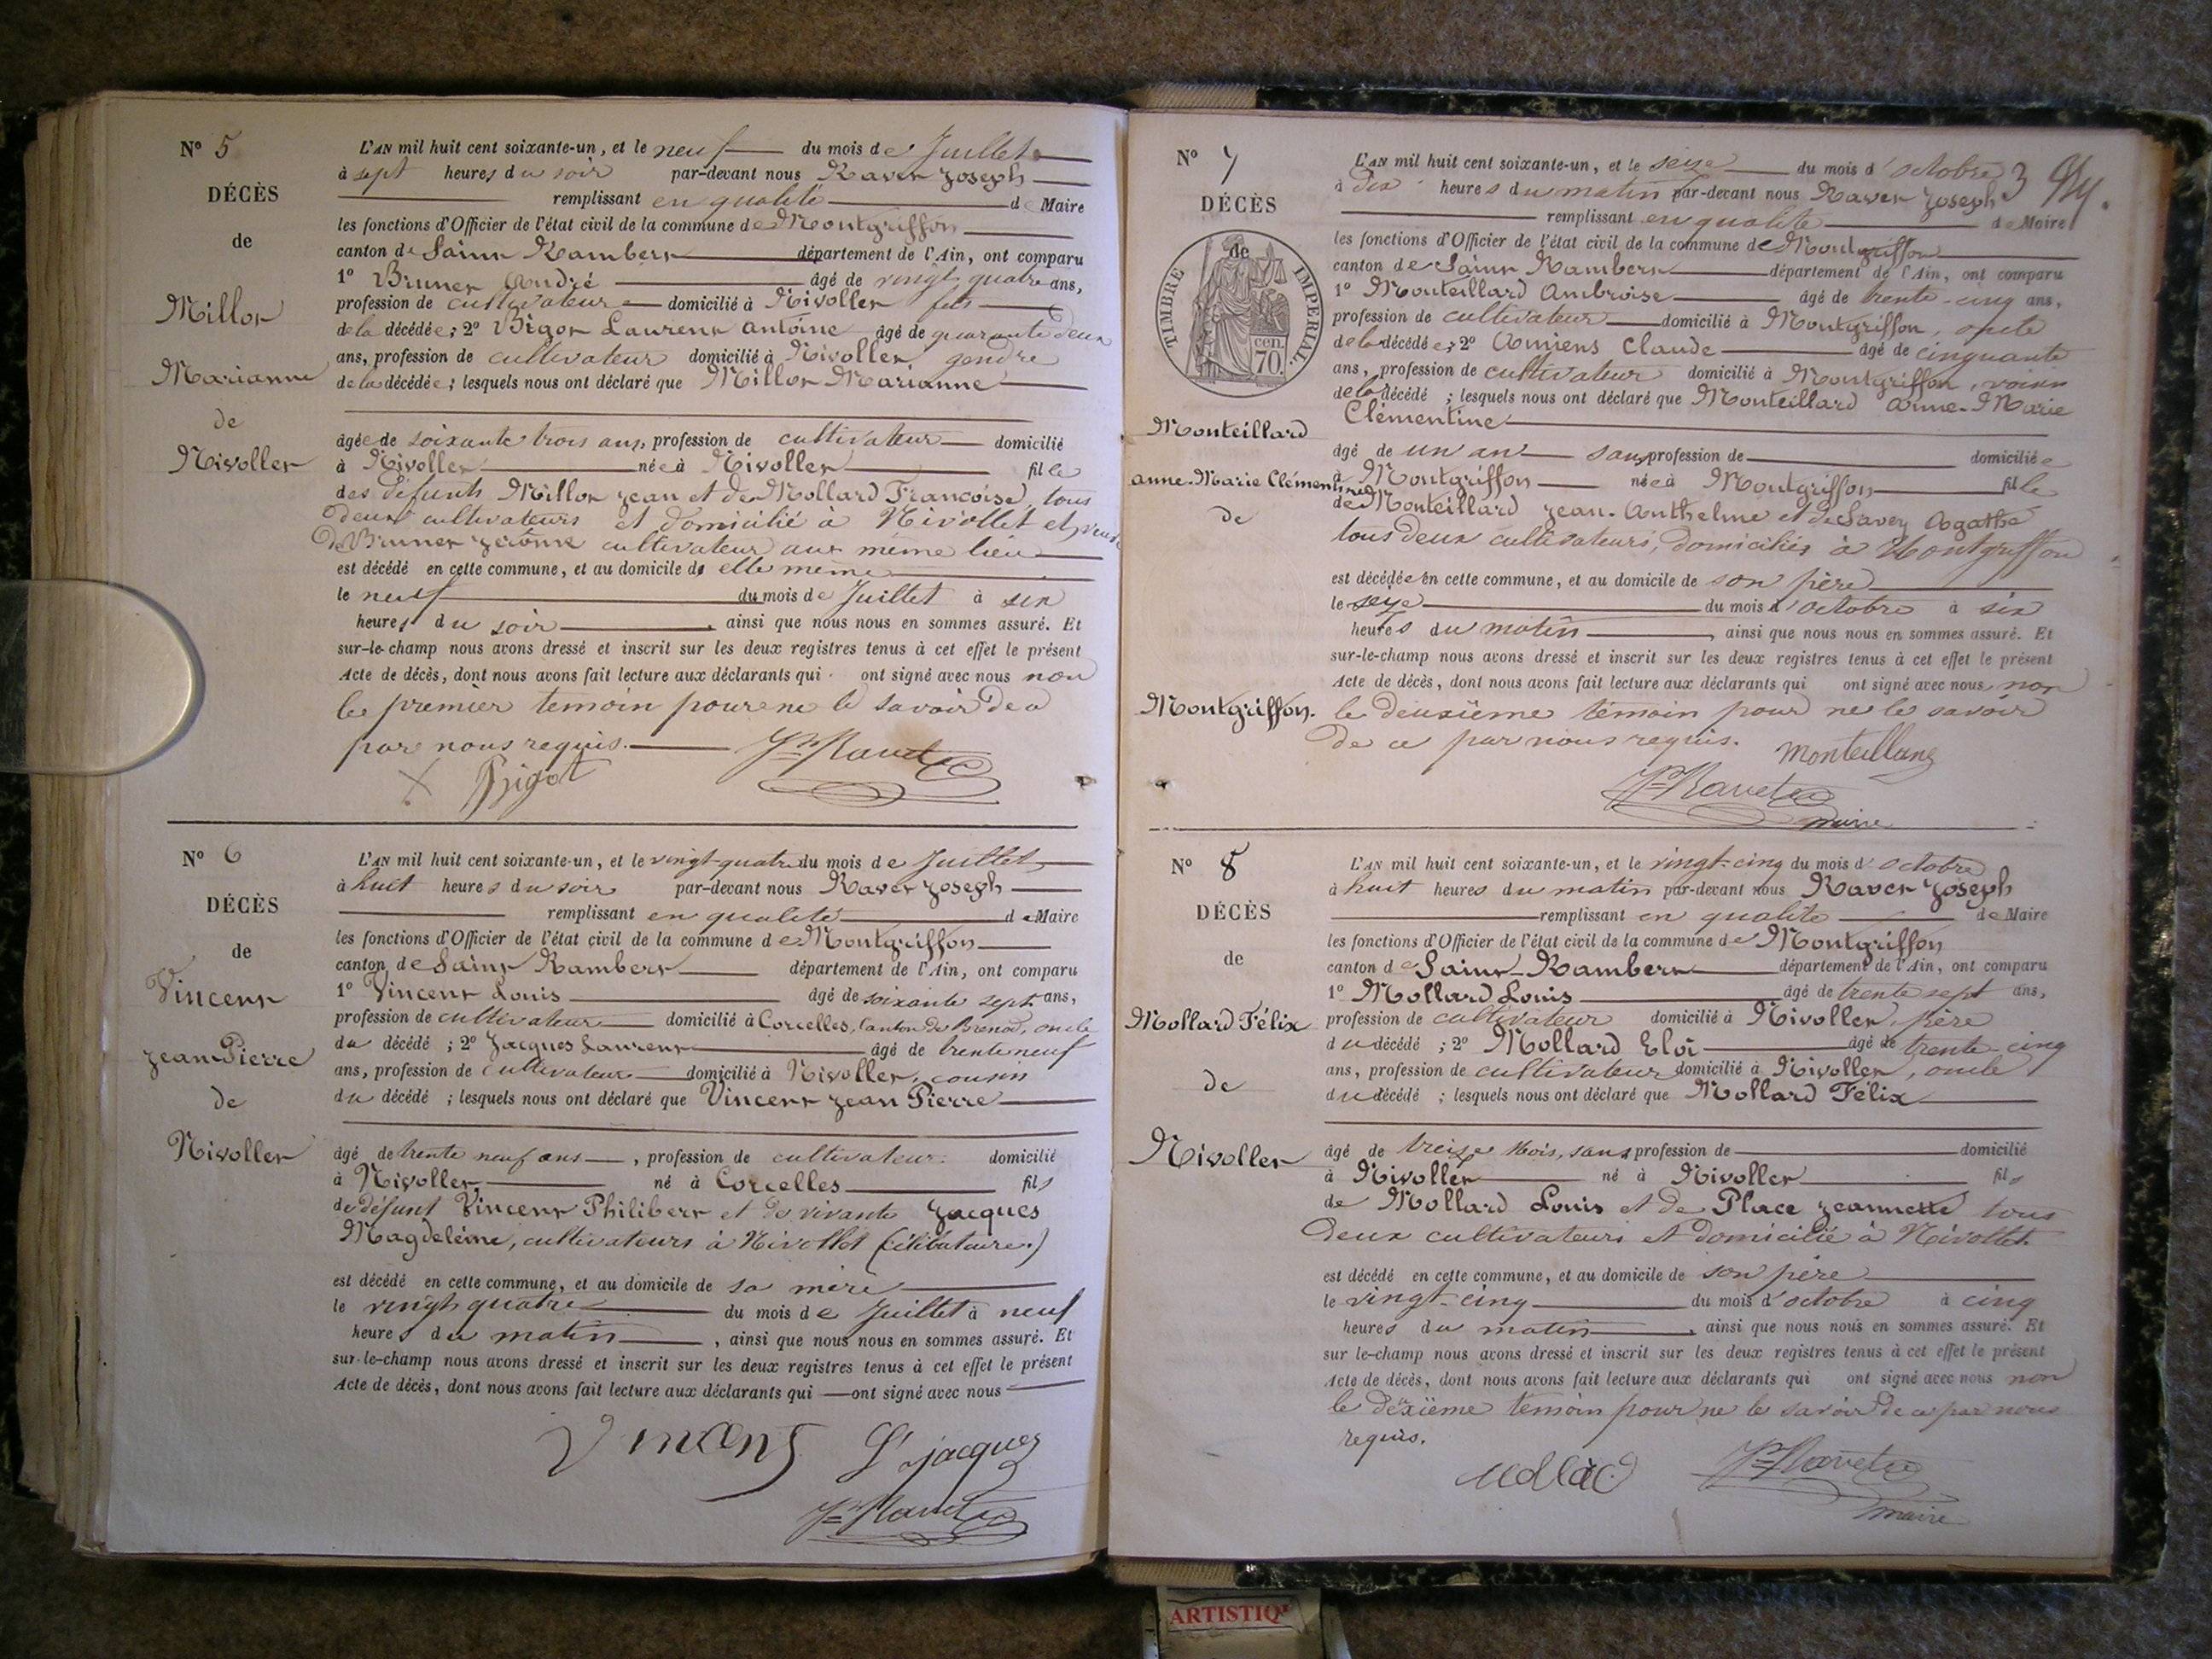 N° 5
DÉCÈS
de
Millot
Marianne
de
Nivollet
L'AN mil huit cent soixante-un, et le neuf du mois de Juillet
à sept heures du soir par-devant nous Ravet Joseph
remplissant en qualité de Maire
les fonctions d'Officier de l'état civil de la commune de Montgriffon
canton de Saint Rambert département de l'Ain, ont comparu
1° Brunet André âgé de vingt quatre ans,
profession de cultivateur domicilié à Nivollet fils
de la décédée; 2° Bigot Laurent antoine âgé de quarante deux
ans, profession de cultivateur domicilié à Nivollet, gendre
de la décédée; lesquels nous ont déclaré que Millot Marianne
âgée de soixante trois ans, profession de cultivateur domicilié
à Nivollet née à Nivollet fille
des défunts Millot Jean et de Mollard Francoise, tous
deux cultivateurs et domicilié à Nivollet et veuve
de Brunet Jerôme cultivateur aux même lieu
est décédé en cette commune, et au domicile de elle même
le neuf du mois de Juillet à six
heures du soir, ainsi que nous nous en sommes assuré. Et
sur-le-champ nous avons dressé et inscrit sur les deux registres tenus à cet effet le présent
Acte de décès, dont nous avons fait lecture aux déclarants qui ont signé avec nous non
le premier temoin pour ne le savoir de ce
par nous requis.
Jh Ravet
Bigot
N° 6
DÉCÈS
de
Vincent
Jean Pierre
de
Nivollet
L'AN mil huit cent soixante-un, et le vingt-quatre du mois de Juillet
à huit heures du soir par-devant nous Ravet Joseph
remplissant en qualité de Maire
les fonctions d'Officier de l'état civil de la commune de Montgriffon
canton de Saint Rambert département de l'Ain, ont comparu
1° Vincent Louis âgé de soixante sept ans,
profession de cultivateur domicilié à Corcelles, Canton de Brenod, oncle
du décédé; 2° Jacques Laurent âgé de trente neuf
ans, profession de cultivateur domicilié à Nivollet, cousin
du décédé; lesquels nous ont déclaré que Vincent Jean Pierre
âgé de trente neuf ans, profession de cultivateur domicilié
à Nivollet né à Corcelles fils
de défunt Vincent Philibert et de vivante Jacques
Magdeleine, cultivateurs à Nivollet (célibataire.)
est décédé en cette commune, et au domicile de sa mère
le vingt quatre du mois de Juillet à neuf
heures du matin, ainsi que nous nous en sommes assuré. Et
sur-le-champ nous avons dressé et inscrit sur les deux registres tenus à cet effet le présent
Acte de décès, dont nous avons fait lecture aux déclarants qui ont signé avec nous
Vincent L. jacques
Jh Ravet
N° 7
DÉCÈS
de
TIMBRE IMPÉRIAL.
cen. 70.
Monteillard
anne-Marie Clémentine
de
Montgriffon.
L'AN mil huit cent soixante-un, et le seize du mois d'octobre
à dix heures du matin par-devant nous Ravet Joseph
remplissant en qualité de Maire
les fonctions d'Officier de l'état civil de la commune de Montgriffon
canton de Saint Rambert département de l'Ain, ont comparu
1° Monteillard Ambroise âgé de trente-cinq ans,
profession de cultivateur domicilié à Montgriffon, oncle
de la décédée; 2° Amiens Claude âgé de cinquante
ans, profession de cultivateur domicilié à Montgriffon, voisin
de la décédé; lesquels nous ont déclaré que Monteillard anne-Marie
Clémentine
âgé de un an sans profession de domiciliée
à Montgriffon née à Montgriffon fille
de Monteillard Jean-Anthelme et de Savey Agathe
tous deux cultivateurs, domiciliés à Montgriffon
est décédée en cette commune, et au domicile de son père
le seize du mois d'octobre à six
heures du matin, ainsi que nous nous en sommes assuré. Et
sur-le-champ nous avons dressé et inscrit sur les deux registres tenus à cet effet le présent
Acte de décès, dont nous avons fait lecture aux déclarants qui ont signé avec nous non
le deuxième témoin pour ne le savoir
de ce par nous requis.
Jh Ravet
maire
N° 8
DÉCÈS
de
Mollard Félix
de
Nivollet
L'AN mil huit cent soixante-un, et le vingt-cinq du mois d'octobre
à huit heures du matin par-devant nous Ravet Joseph
remplissant en qualité de Maire
les fonctions d'Officier de l'état civil de la commune de Montgriffon
canton de Saint-Rambert département de l'Ain, ont comparu
1° Mollard Louis âgé de trente sept ans,
profession de cultivateur domicilié à Nivollet, père
du décédé; 2° Mollard Eloi âgé de trente-cinq
ans, profession de cultivateur domicilié à Nivollet, oncle
du décédé; lesquels nous ont déclaré que Mollard Félix
âgé de treize Mois, sans profession de domicilié
à Nivollet né à Nivollet fils
de Mollard Louis et de Place Jeannette tous
deux cultivateurs et domicilié à Nivollet
est décédé en cette commune, et au domicile de son père
le vingt-cinq du mois d'octobre à cinq
heures du matin, ainsi que nous nous en sommes assuré. Et
sur le-champ nous avons dressé et inscrit sur les deux registres tenus à cet effet le présent
Acte de décès, dont nous avons fait lecture aux déclarants qui ont signé avec nous non
le deuxième temoin pour ne le savoir de ce par nous
requis.
Jh Ravet
maire
ARTISTIQ